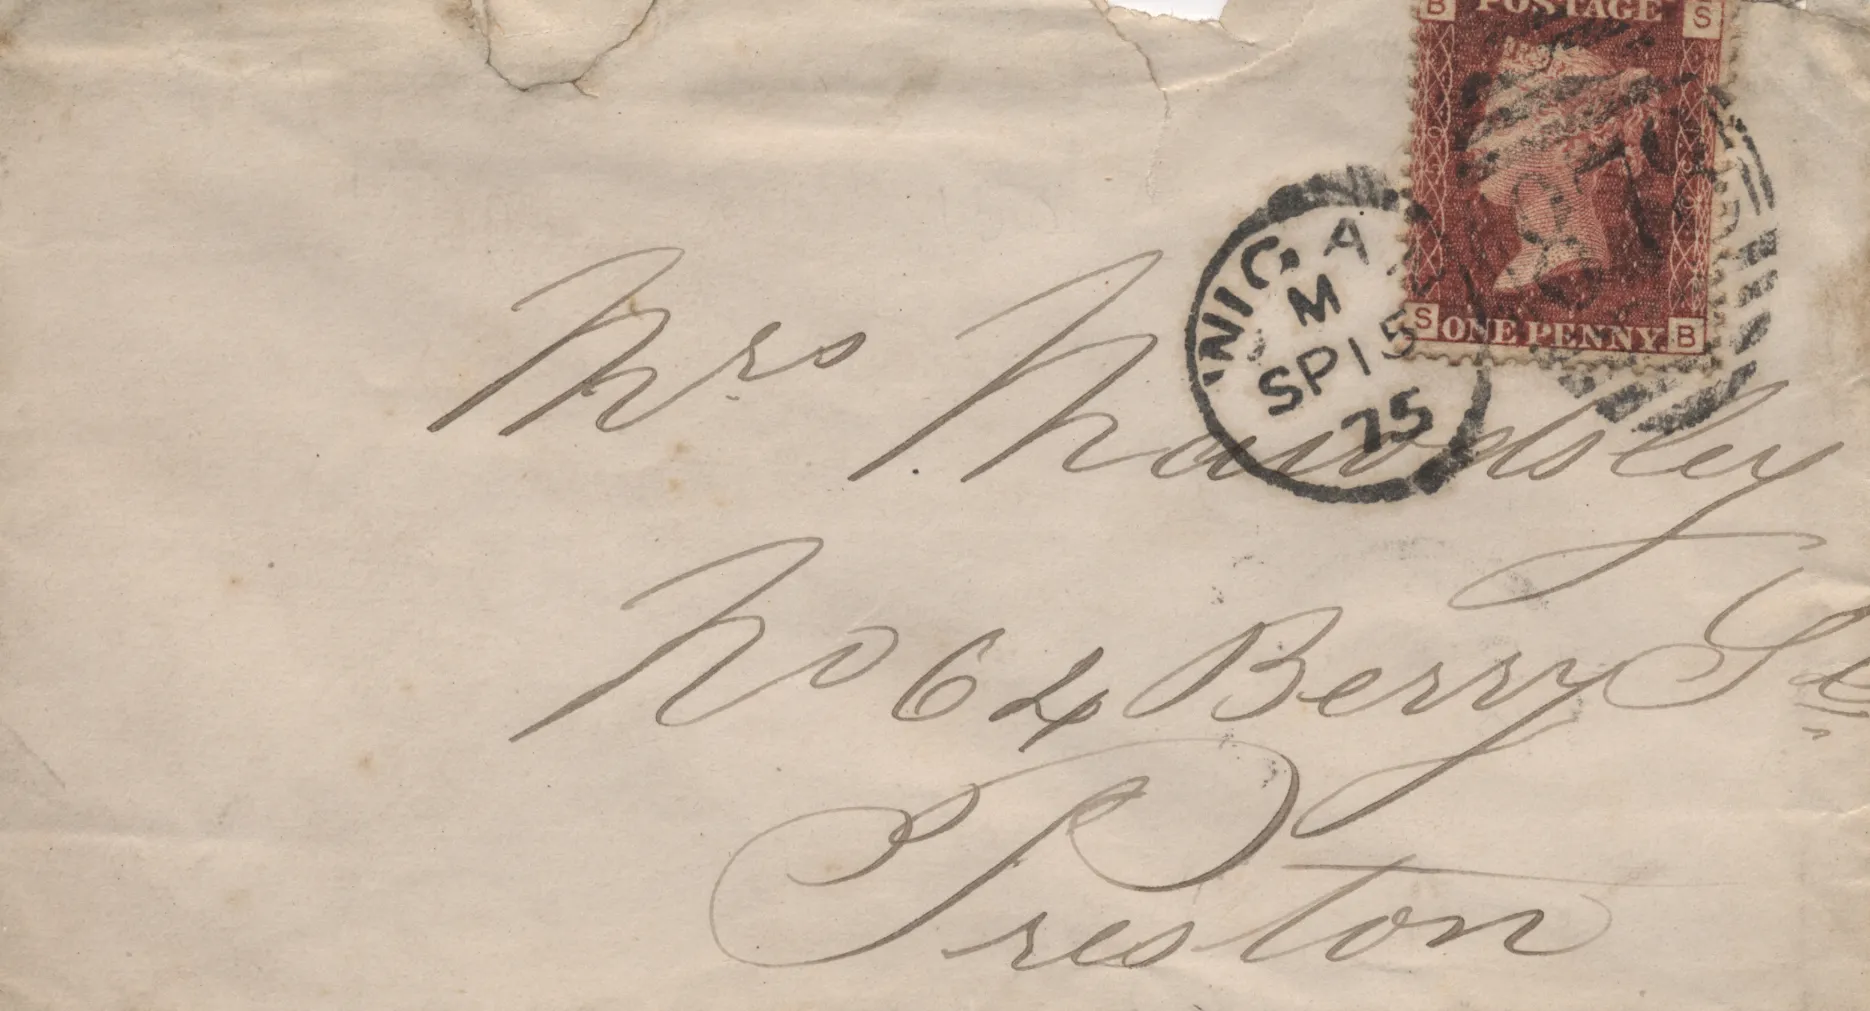 B POSTAGE S
WIGAN
M
SP 15
75
S ONE PENNY B
Mrs Mawdsley
No 64 Berry St
Preston